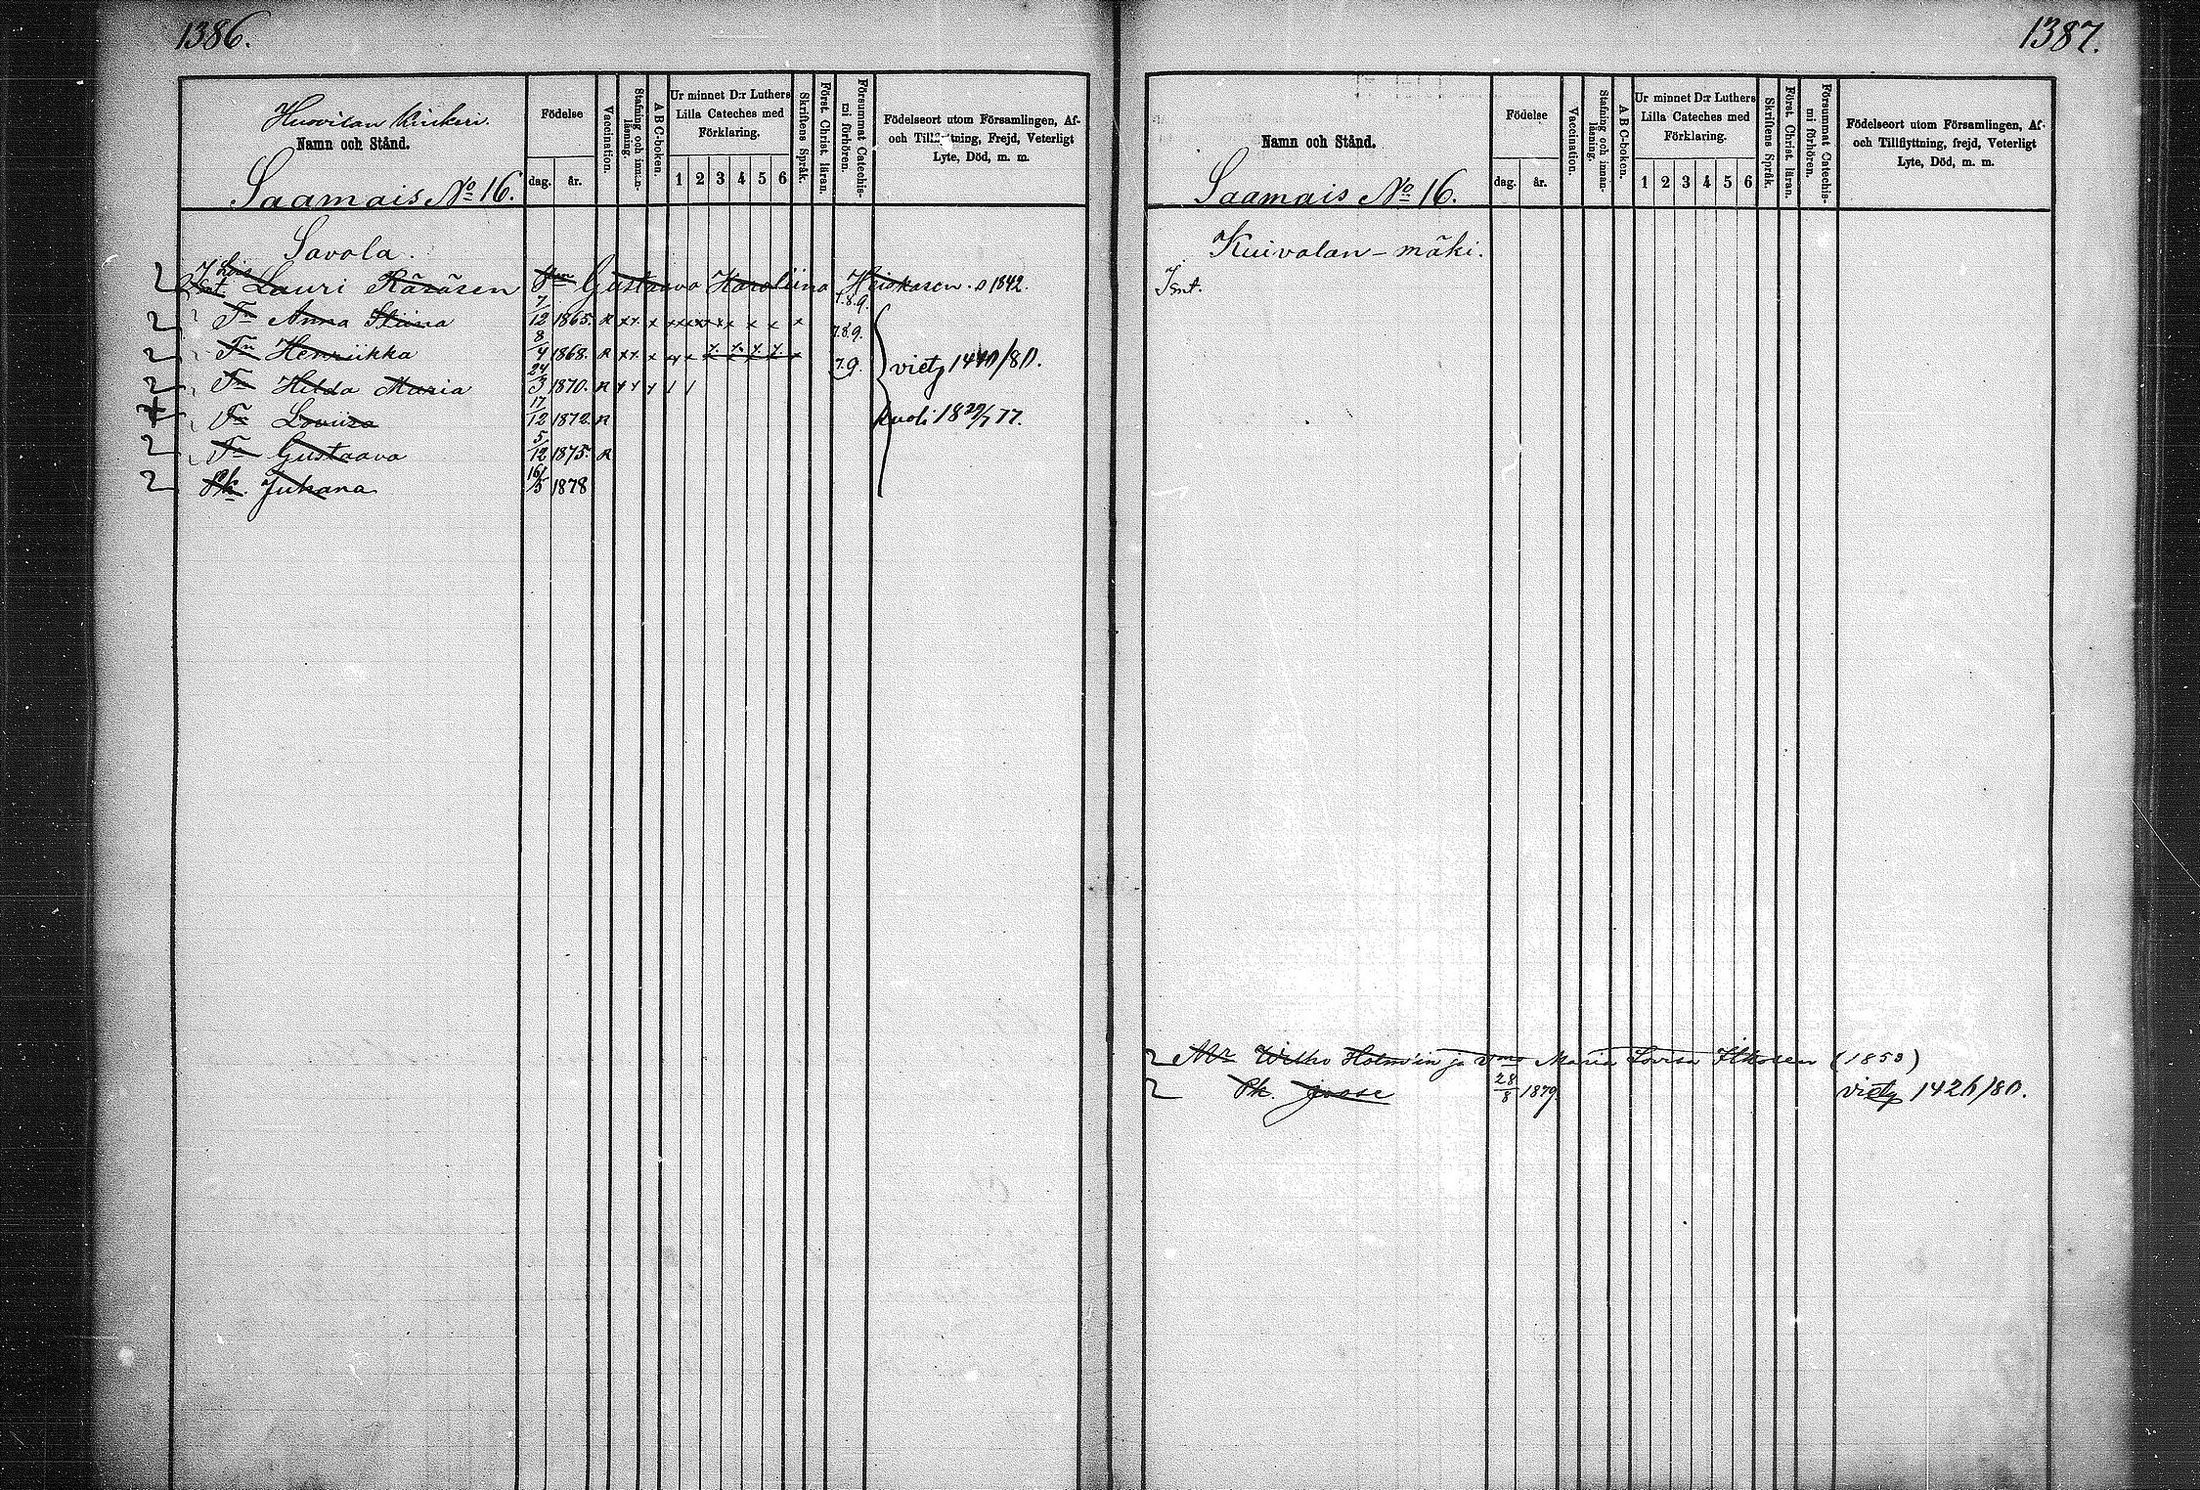 1386.
Huovilan kinkeri.
Namn och Stånd.
Saamais No 16.
Födelse
dag. år.
Vaccination.
Stafning och innan-läsning.
A B C-boken.
Ur minnet D:r Luthers
Lilla Cateches med
Förklaring.
1 2 3 4 5 6
Skriftens Språk.
Först. Christ. läran.
Försummat Catechis-
mi förhören.
Födelseort utom Församlingen, Af-
och Tillflyttning, Frejd, Veterligt
Lyte, Död, m. m.
Savola.
Lois Lauri Räsäsen Gustaava Karoliina s 1842.
Tr Anna Stiina 7/12 1865. R 7.8.9.
Tr Henriikka 8/4 1868. R 7.8.9.
Tr Hilda Maria 24/3 1870. R 7.9. viety 1440/80.
Tr Loviisa 17/12 1872. R kuoli 18 29/7 77.
Tr Gustaava 5/12 1875. R
Pk. Juhana 16/5 1878
1387.
Namn och Stånd.
Saamais No 16.
Födelse
dag. år.
Vaccination.
Stafning och innan-
läsning.
A B C-boken.
Ur minnet D:r Luthers
Lilla Cateches med
Förklaring.
1 2 3 4 5 6
Skriftens Språk.
Först. Christ. läran.
Försummat Catechis-
mi förhören.
Födelseort utom Församlingen, Af-
och Tillflyttning, frejd, Veterligt
Lyte, Död, m. m.
Kuivalan-mäki.
Isnt.
Holm'in ja Vmo Maria Lovisa Itkosen (1853)
Pk. Josse 28/8 1879. viety 1426/80.